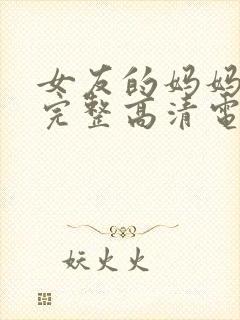 女友的妈妈
完整高清電
妖火火